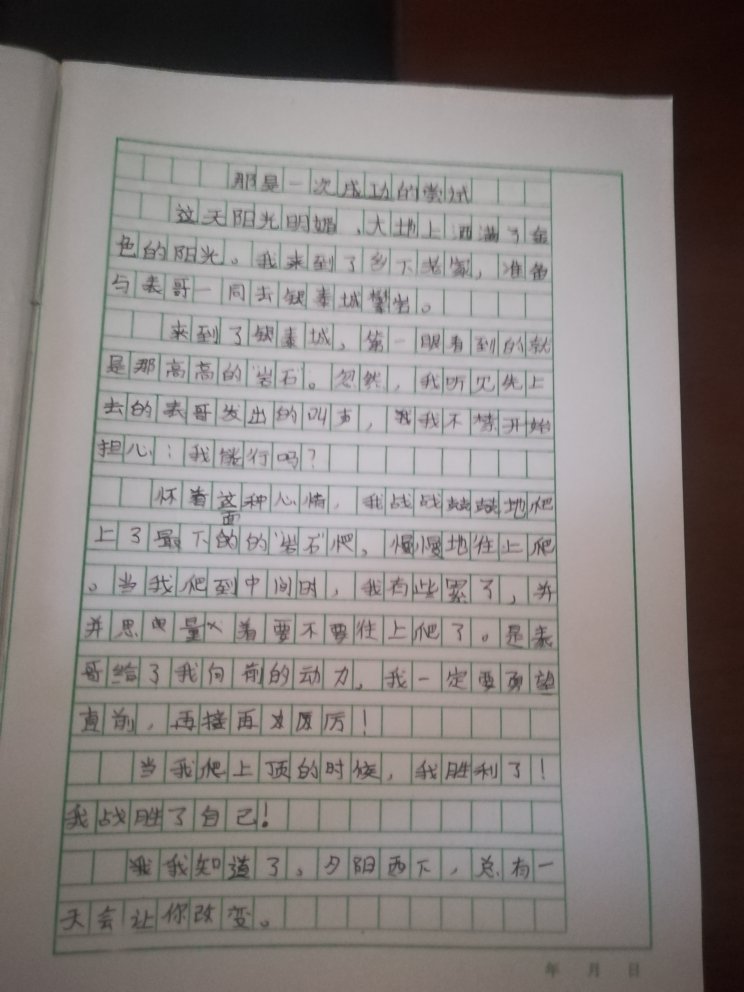 那是一次成功的尝试
这天阳光明媚，大地上洒满了金
色的阳光。我来到了乡下老家，准备
与表哥一同去银泰城攀岩。
来到了银泰城，第一眼看到的就
是那高高的“岩石”。忽然，我听见先上
去的表哥发出的叫声，我不禁开始
担心：我能行吗？
怀着这种心情，我战战兢兢地爬
上了最下面的“岩石”爬。慢慢地往上爬
。当我爬到中间时，我有些累了，并
并思量着要不要往上爬了。是表
哥给了我向前的动力，我一定要勇望
直前，再接再厉！
当我爬上顶的时候，我胜利了！
我战胜了自己！
我知道了，夕阳西下，总有一
天会让你改变。
年 月 日